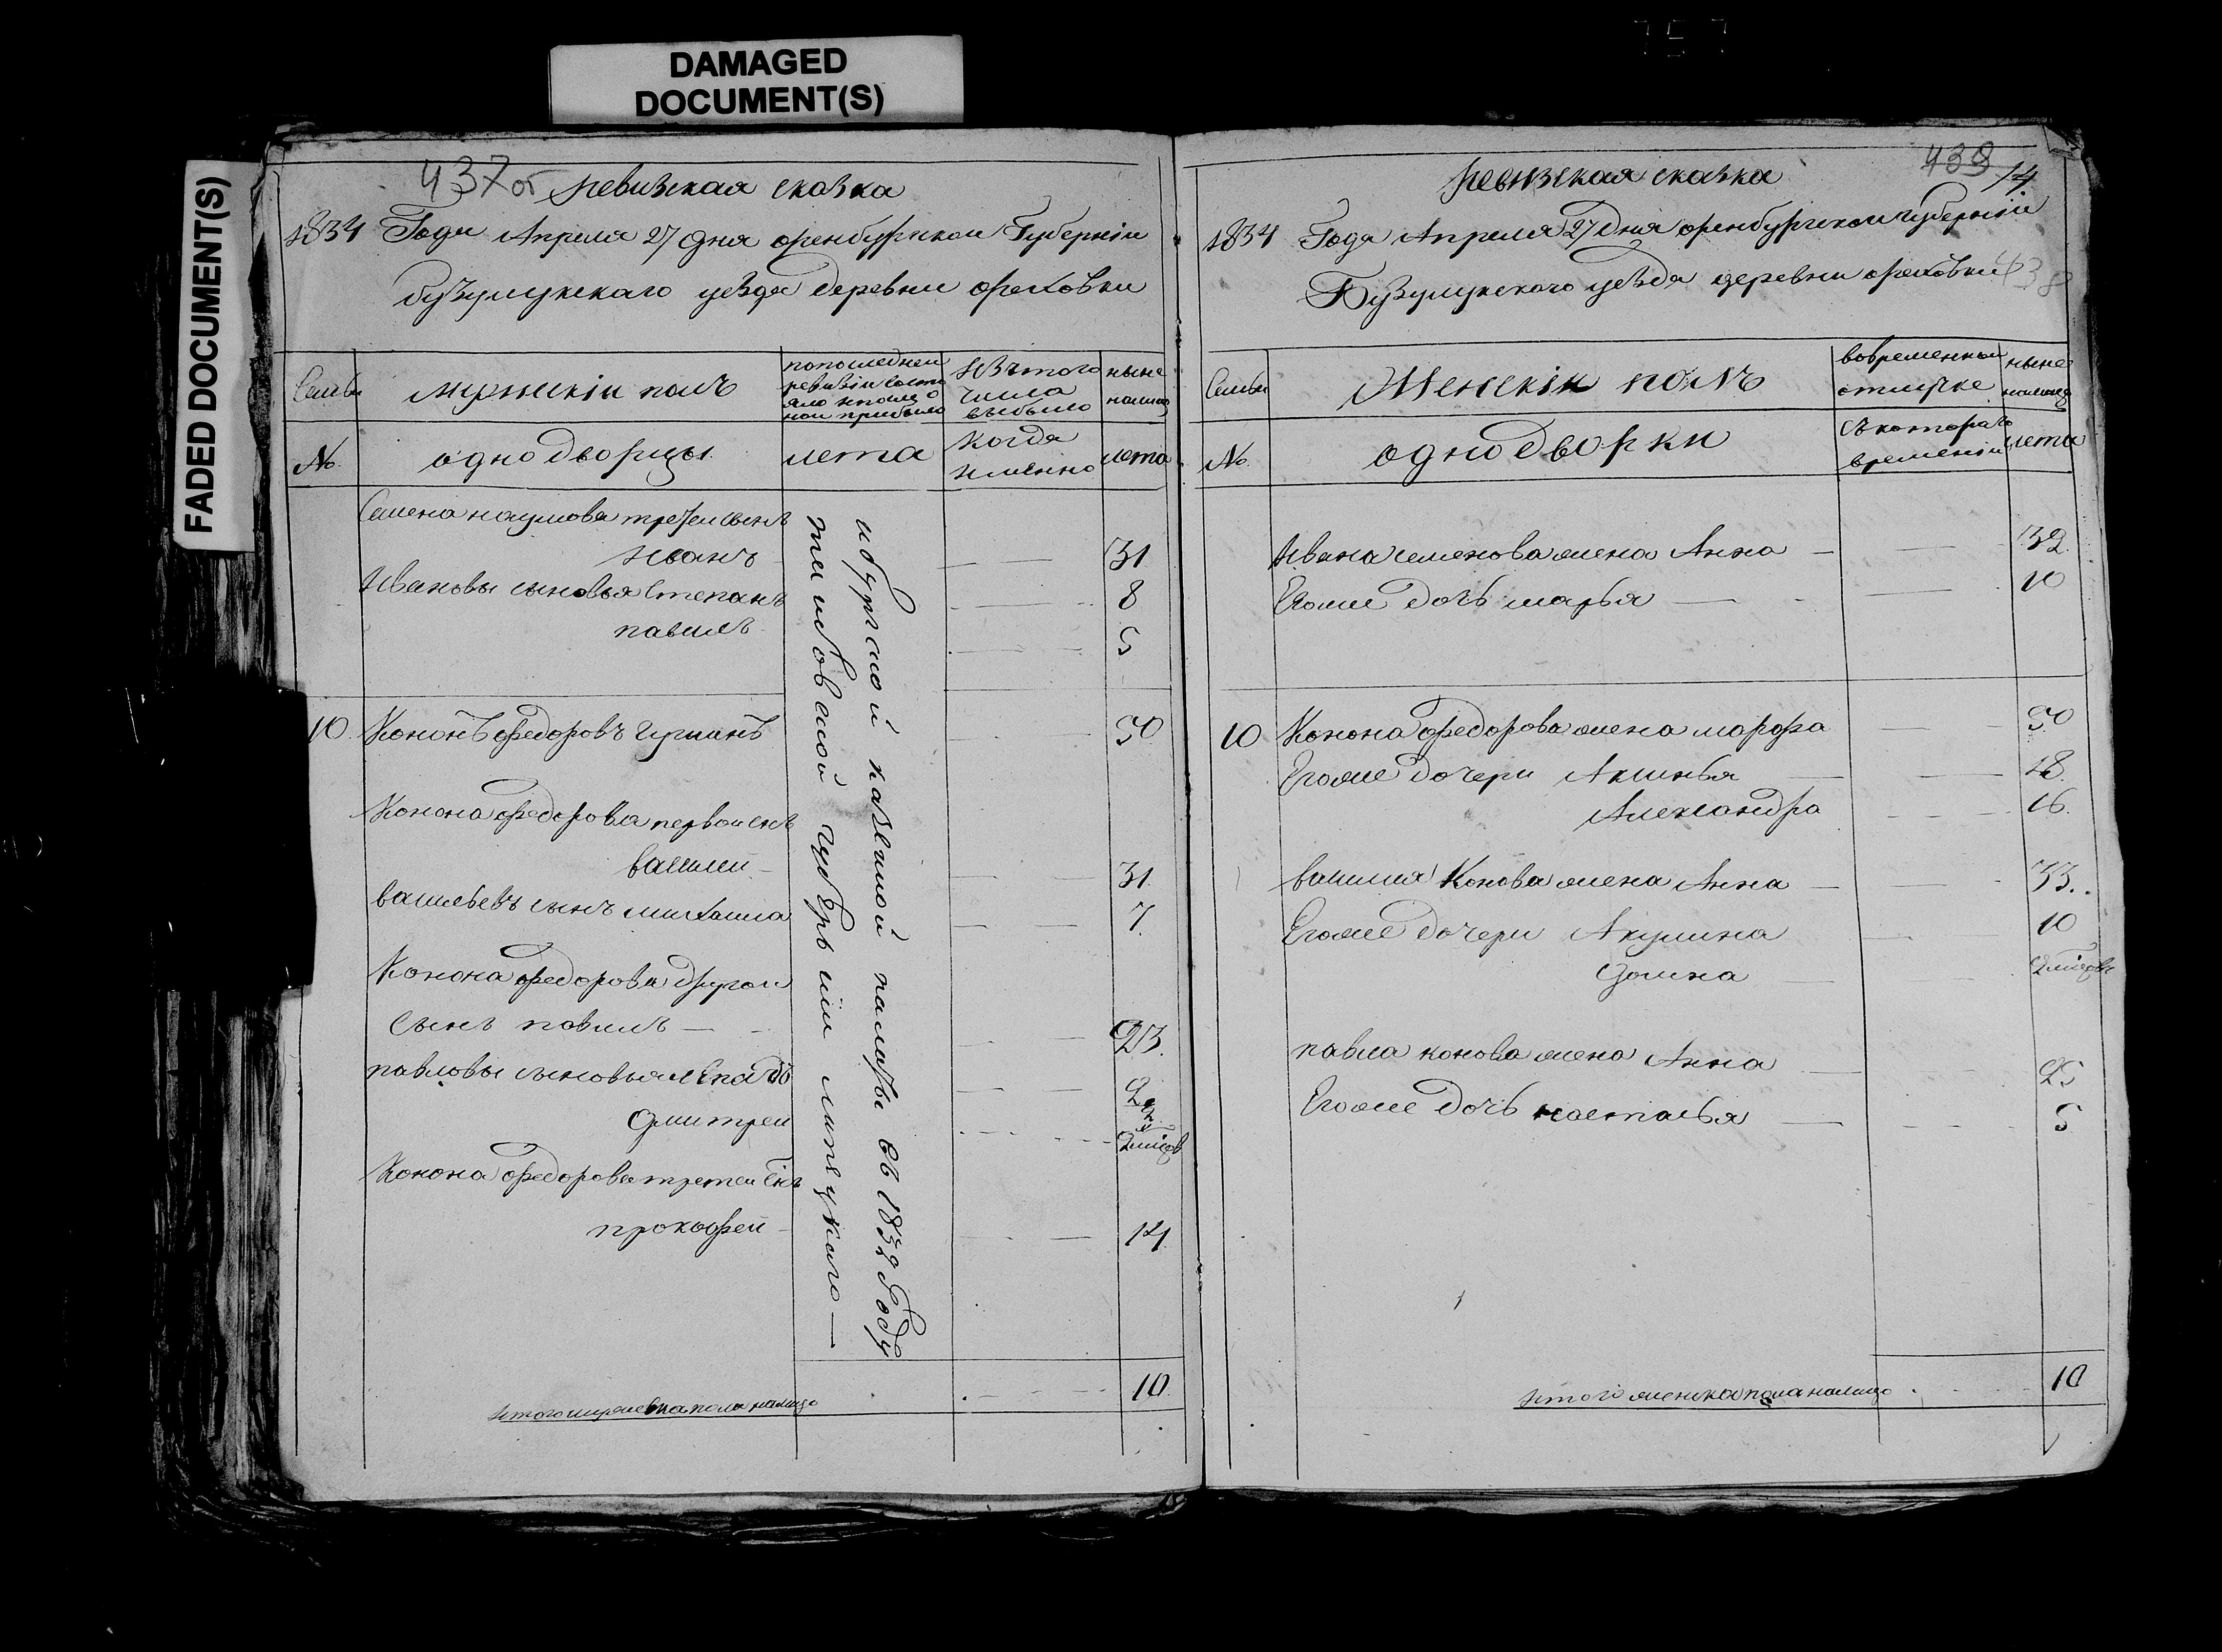 DAMAGED
DOCUMENT(S)
FADED DOCUMENT(S)
437об
ревизская сказка
1834 Года Апреля 27 дня оренбургской Губернiи
бузулукскаго уезда деревни ореховки
Семьи
мужескiй полъ
изъ того
числа
выбыло
ныне
налицо
№
однодворцы
лета
когда
именно
лета
Семена наумова третей сынъ
Иванъ 31
Ивановы сыновья Степанъ 8
павилъ 5
10 Кононъ федоровъ 50
Конона федорова первой снъ
василей 31
васильевъ сынъ михаила 7
Конона федорова другой
сынъ павилъ 23
павловы сыновья 2
дмитрей
Конона федорова третей снъ
прокофей 14
казенной палаты въ 1832 Году
губернiи
итого мужеска пола налицо 10
439 14
ревизская сказка
1834 Года Апреля 27 дня оренбургской губернiи
Бузулукского уезда деревни ореховки
438
Семьи
Женскiй полъ
вовременной
отлучке
ныне
налицо
№
однодворки
съ котораго
времени
лета
Ивана семенова жена Анна 32
Егоже дочь марья 10
10 Конона федорова жена марфа 50
Егоже дочери Аксинья 18
Александра 16
василья Конова жена Анна 33
Егоже дочери Акулина 10
домна
павла конова жена Анна 25
Егоже дочь насталья 5
итого женска пола налицо 10